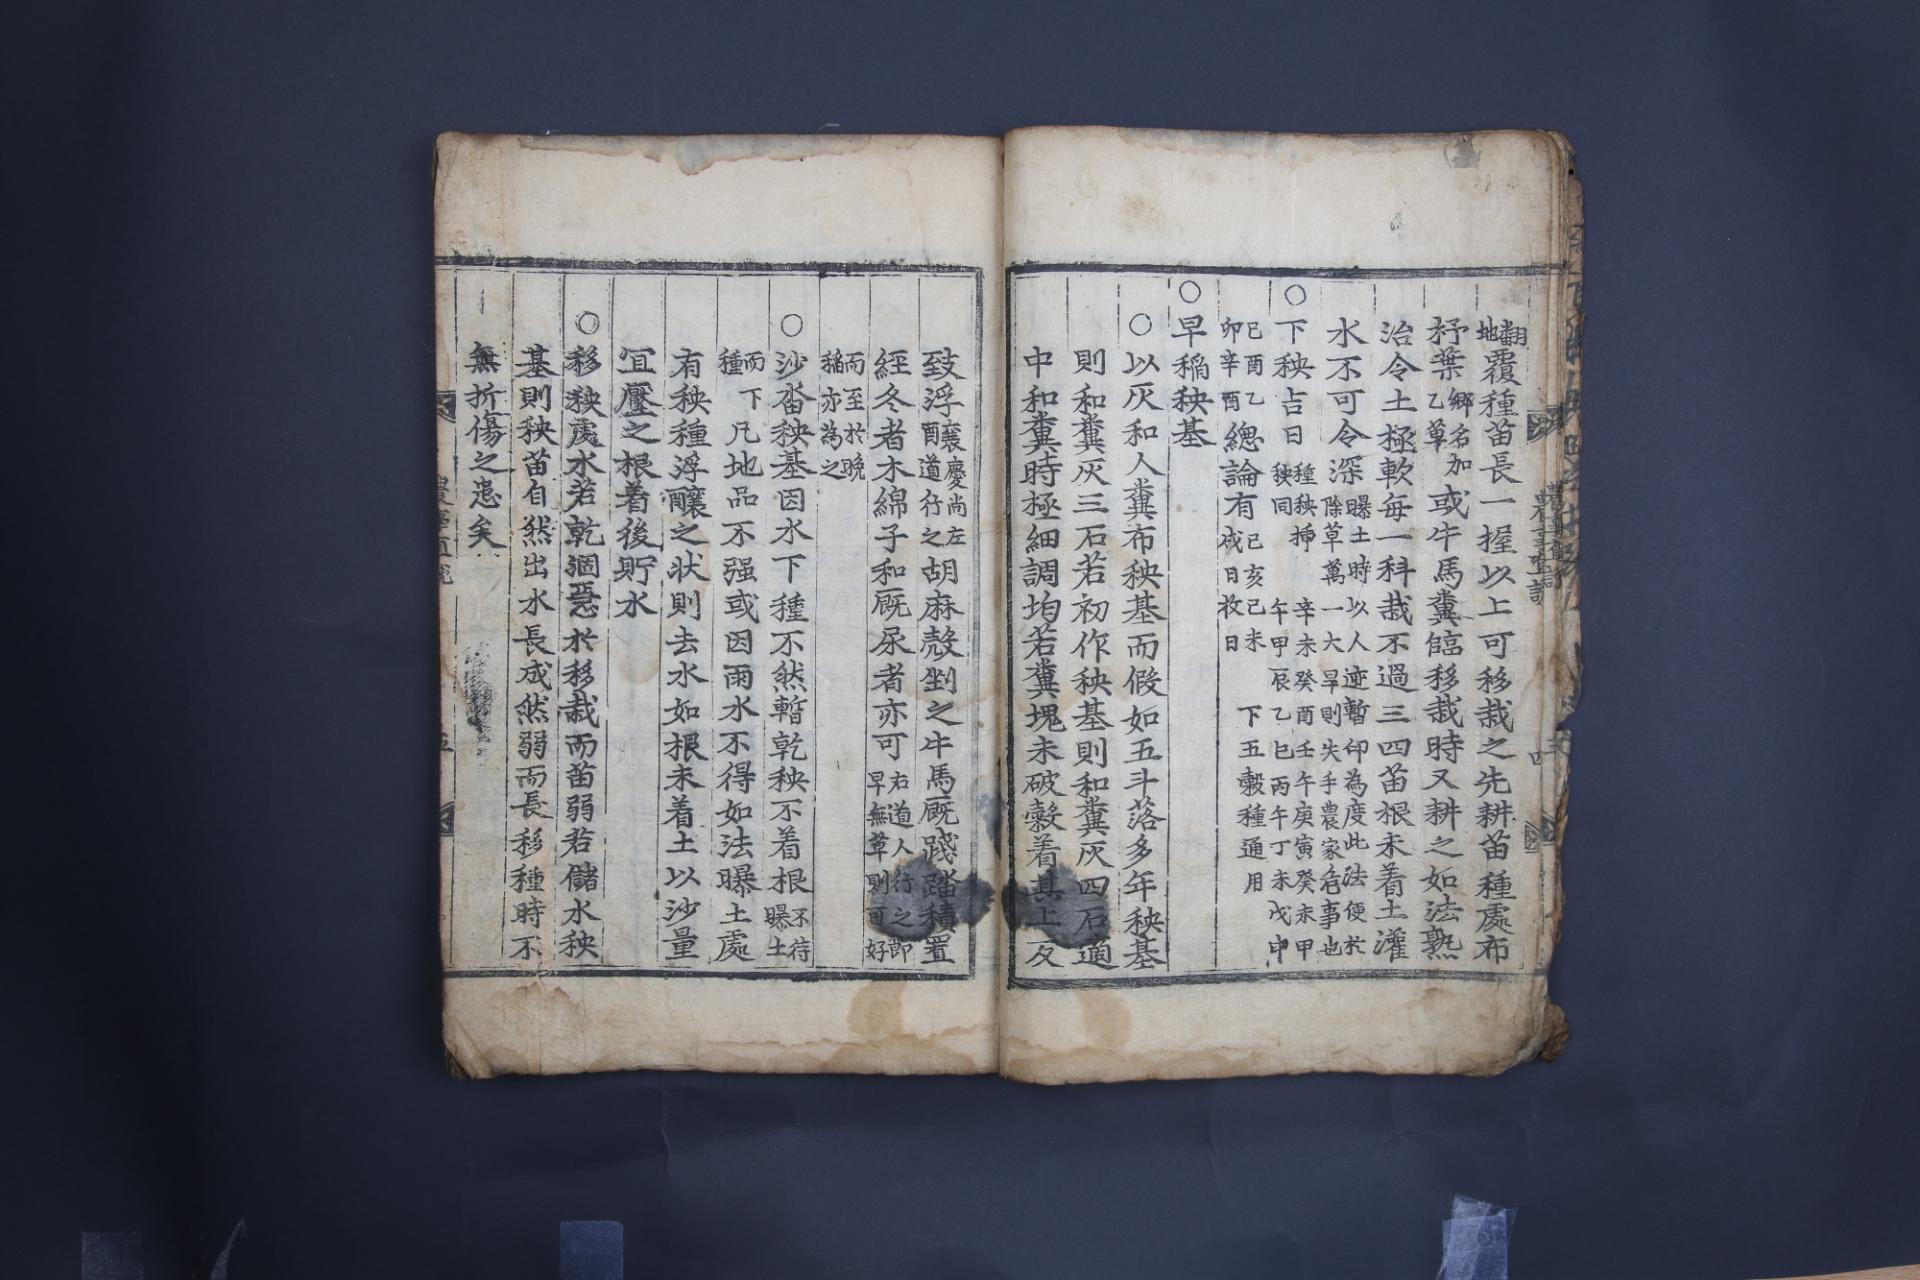 翻地覆種苗長一握以上可移栽之先耕苗種處布
杼葉鄉名加乙草或牛馬糞臨移栽時又耕之如法熟
治令土極軟每一科栽不過三四苗根未着土灌
水不可令深曝土時以人迹暫印為度此法便於除草萬一大旱則失手農家危事也
○下秧吉日種秧揷秧同辛未癸酉壬午庚寅癸未甲午甲辰乙巳丙午丁未戊申
己酉乙卯辛酉總論有己亥己未戌日收日下五穀種通用
○早稲秧基
○以灰和人糞布秧基而假如五斗落多年秧基
則和糞灰三石若初作秧基則和糞灰四石適
中和糞時極細調均若糞塊未破穀着其上反
致浮釀慶尚左道行之胡麻殼剉之牛馬廐踐踏積置
經冬者木綿子和廐尿者亦可右道人行之即早無草則可好
而至於晚稲亦為之
○沙畓秧基因水下種不然暫乾秧不着根不待曝土
而下種凡地品不强或因雨水不得如法曝土處
有秧種浮釀之状則去水如根未着土以沙量
宜壓之根着後貯水
○移秧處水若乾涸惡於移栽而苗弱若儲水秧
基則秧苗自然出水長成然弱而長移種時不
無折傷之患矣